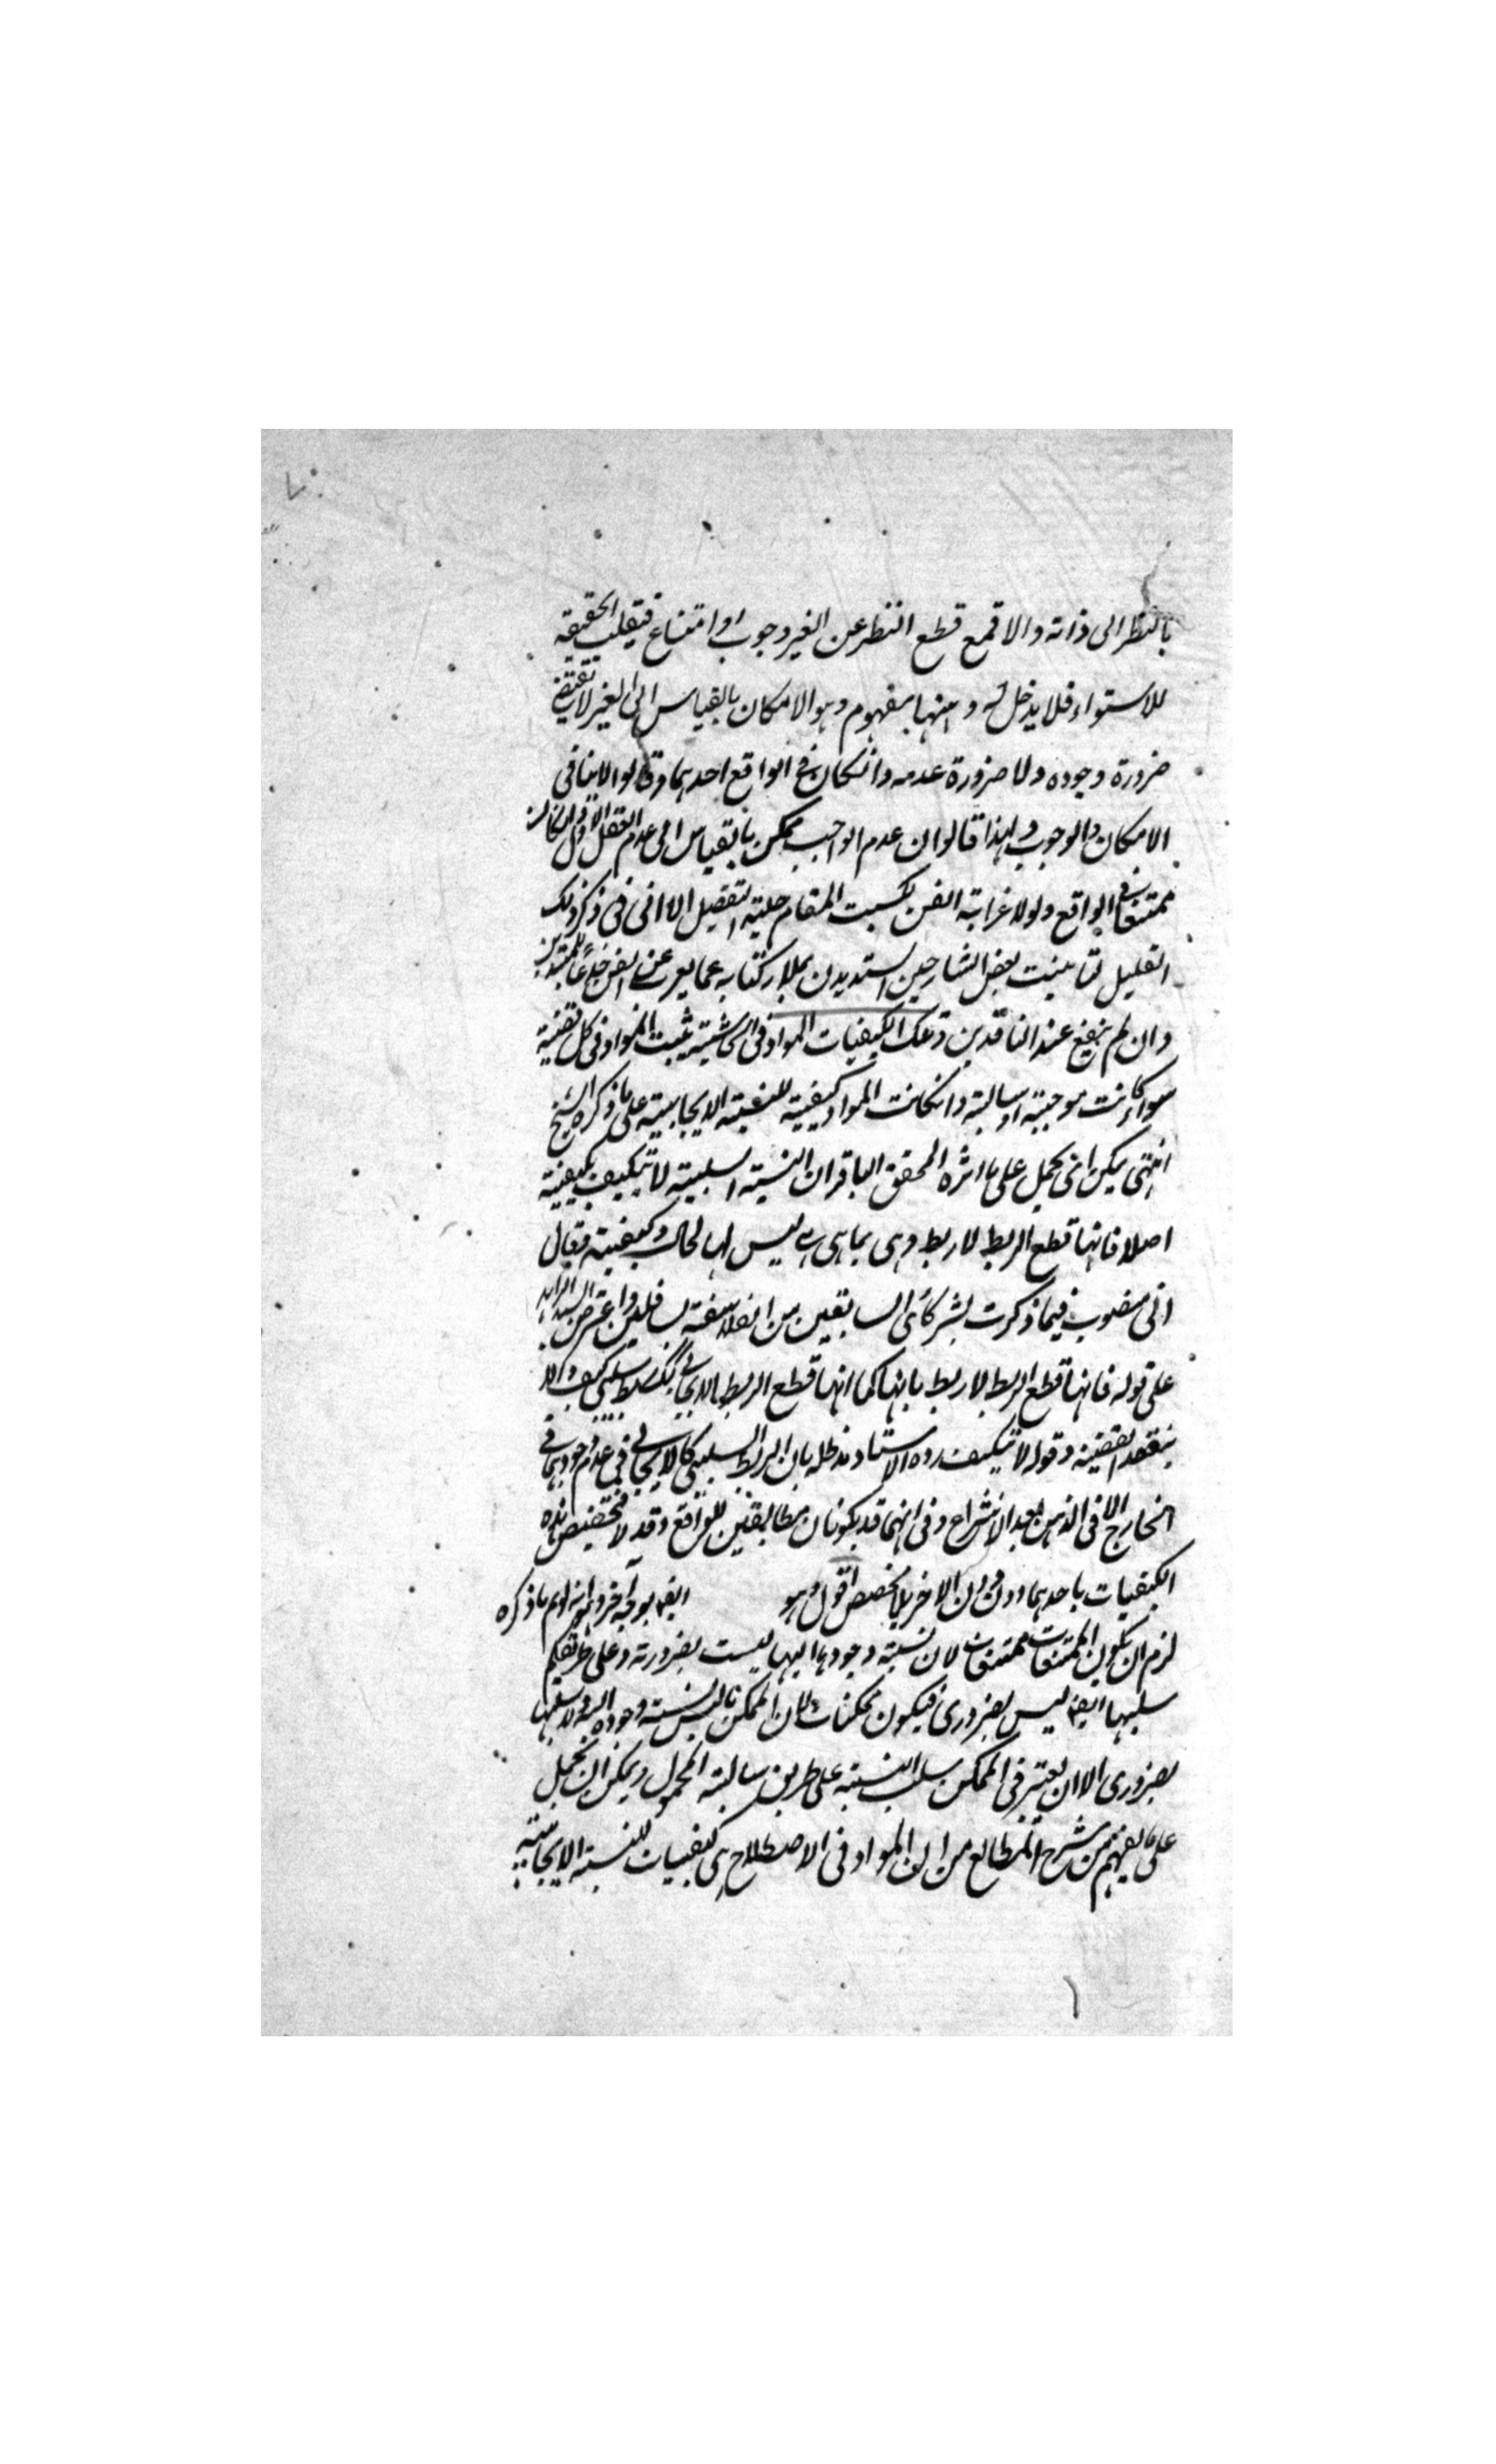 بالنظر الى ذاته والا فمع قطع النظر عن الغير وجوب او امتناع فينقلب الحقيقة
للاستواء فلا يدخل له و امنها بمفهوم وهو الامكان بالقياس الى الغير لا يقتضي
ضرورة وجوده ولا ضرورة عدمه وانكان في الواقع احدهما وقالوا لا ينافي
الامكان والوجوب ولهذا قالوا ان عدم الواجب ممكن بالقياس الى عدم العقل الاول وانكان
ممتنعا في الواقع ولولا غرابة الفن لكسبت المقام حلية التفصيل الا انى فى ذكر ذلك
القليل بعض الشارحين كتابه عما يعرى عن الفن
وان لم ينفع عند الناقدين وتلك الكيفيات المواد فى الحاشية ثبت المواد فى كل قضية
سواء كانت موجبة او سالبة وانكانت المواد كيفية للنسبة الايجابية على ما ذكره الشيخ
انتهى يمكن ان يحمل على ما اثره المحقق الباقر ان النسبة السلبية لا تتكيف بكيفية
اصلا فانها قطع الربط لا ربط وهى بما هى هى ليس لها لحاظ وكيفية فقال
انى فيما ذكرت بشركائى السابقين من الفلاسفة واعترض السيد الزاهد
على قوله فانها قطع الربط لا ربط بانها كما انها قطع الربط بالايجابي كك ربط سلبي كيف والا
ينعقد القضية وقوله لا تتكيف رده الاستاد مد ظله بان الربط السلبي كالايجابي فى عدم وجودهما فى
الخارج الا فى الذهن بعد الانتزاع وفى انهما قد يكونان مطابقين للواقع وقد لا فتخصيص هذه
الكيفيات باحدهما دون الاخر بلا مخصص اقول وهو ايضا بوجه آخر وهو انه لو تم ما ذكره
لزم ان يكون الممتنعات ممتنعات لان نسبة وجودها اليها ليست بضرورية وعلى طريقكم
سلبها ايضا ليس بضروري فيكون ممكنات لان الممكن ما ليس نسبة وجوده اليه ولا سلبها
بضروري الا ان يعتبر فى الممكن سلب النسبة على طريق سالبة المحمول ويمكن ان يحمل
على ما يفهم من شرح المطالع من ان المواد فى الاصطلاح هى كيفيات للنسبة الايجابية